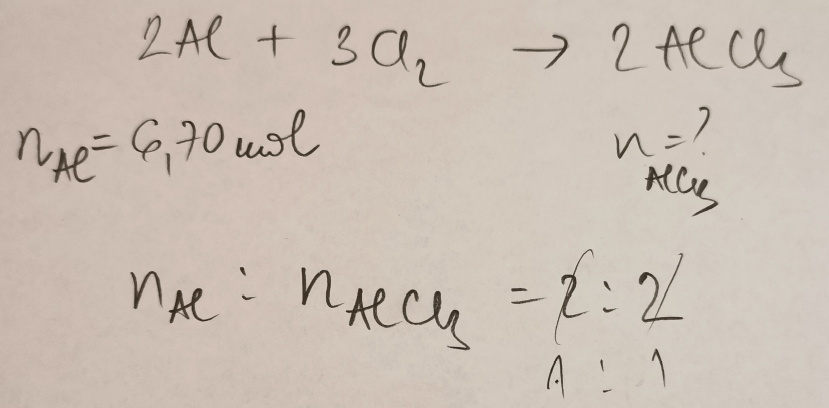 2Al + 3Cl₂ → 2AlCl₃
n_Al = 6,70 mol n_AlCl₃ = ?
n_Al : n_AlCl₃ = 2 : 2
1 : 1